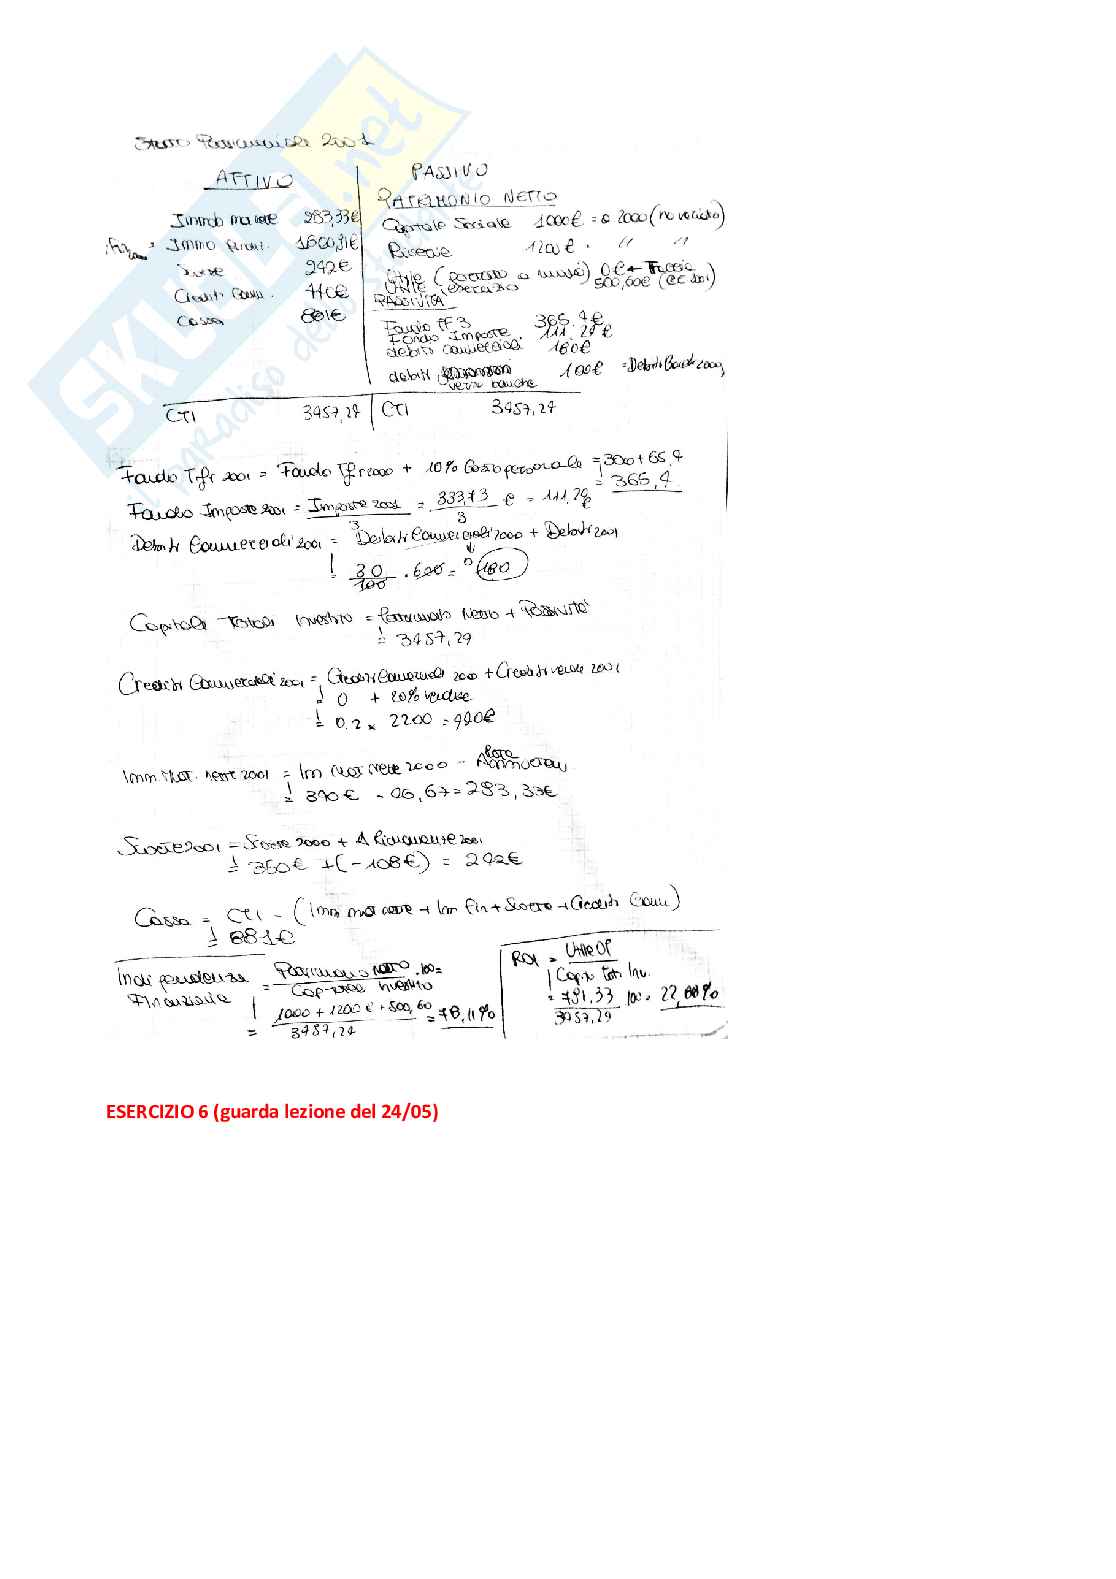 Stato Patrimoniale 2001
ATTIVO
Immob mat nette 283,33€
Immo finanz. 1600,31€
Scorte 242€
Crediti Comm. 440€
Cassa 881€
PASSIVO
PATRIMONIO NETTO
Capitale Sociale 1000€ = a 2000 (no varia)
Riserve 1200€ " "
Utile (portato a nuovo) 0€
Utile esercizio 500,60€ (CE 2001)
PASSIVITÀ
Fondo TFR 365,4€
Fondo Imposte 111,24€
debiti commerciali 180€
debiti verso banche 100€ = Debiti Banche 2000
CTI 3457,24
CTI 3457,24
Fondo Tfr 2001 = Fondo Tfr 2000 + 10% Costo personale = 300 + 65,4
= 365,4
Fondo Imposte 2001 = Imposte 2001 / 3 = 333,73 / 3 € = 111,24€
Debiti Commerciali 2001 = Debiti Commerciali 2000 + Debiti 2001
= 30/100 . 600 = 180
Capitale Totale Investito = Patrimonio Netto + Passività
= 3457,24
Crediti Commerciali 2001 = Crediti Commerciali 2000 + Crediti vendite 2001
= 0 + 20% vendite
= 0,2 x 2200 = 440€
Imm Mat. nette 2001 = Im mat nette 2000 - Quota Ammortam
= 310€ - 26,67 = 283,33€
Scorte 2001 = Scorte 2000 + Δ Rimanenze 2001
= 350€ + (-108€) = 242€
Cassa = CTI - (Imm mat nette + Im Fin + Scorte + Crediti Comm)
= 881€
Indipendenza Finanziaria = Patrimonio Netto / Cap. tot. investito . 100 =
= 1000 + 1200€ + 500,60 / 3457,24 = 78,11%
ROI = Utile OP / Capit. Tot. Inv.
= 791,33 / 3457,24 100 = 22,88%
SKUOLA.net
il paradiso dello studente
ESERCIZIO 6 (guarda lezione del 24/05)